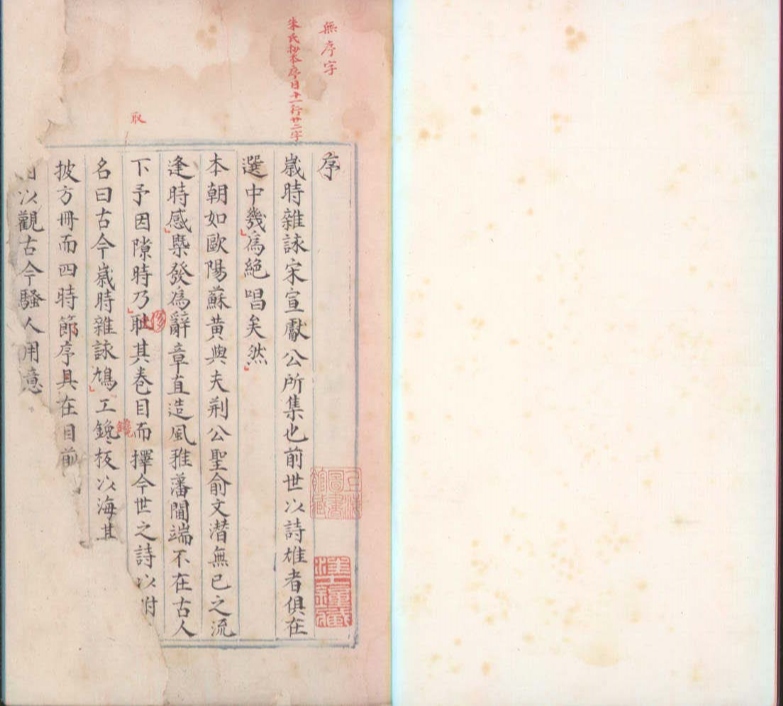 無序字
朱氏抄本序目十一行廿二字
取
序
歲時雜詠宋宣獻公所集也前世以詩雄者俱在
選中幾爲絕唱矣然
本朝如歐陽蘇黃與夫荆公聖俞文潛無已之流
逢時感槩發爲辭章直造風雅藩閫端不在古人
下予因隙時乃耴其卷目而擇今世之詩以附
名曰古今歲時雜詠鳩工鋟板以海其
披方冊而四時節序具在目前
以觀古今騷人用意